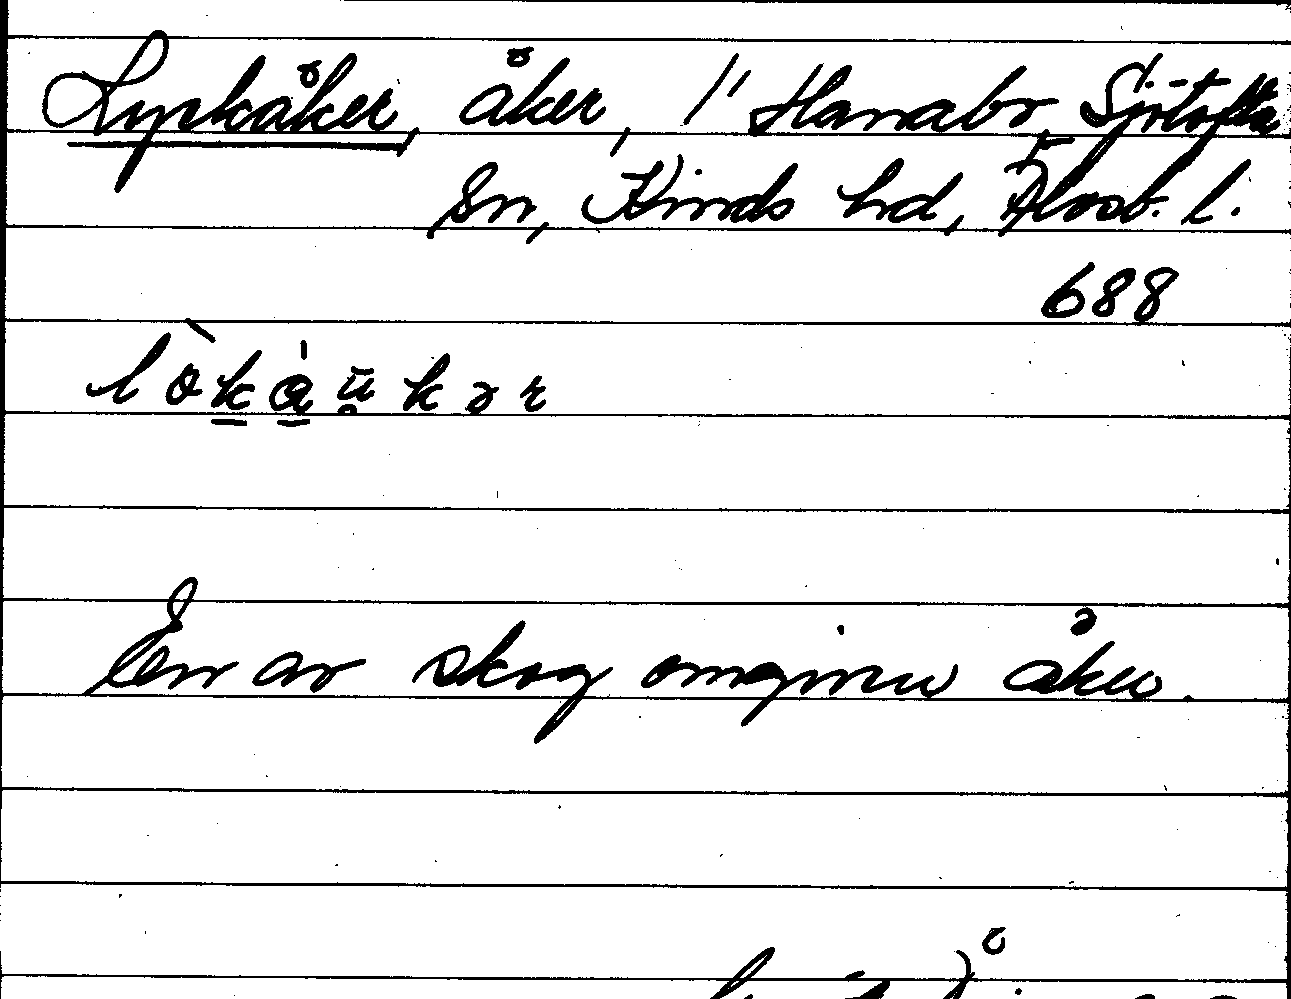 Lyckåker, åker, 1/1 Hanabo, Sjötofta
sn, Kinds hd, Älvsb. l.
688
En av skog omgiven åker.